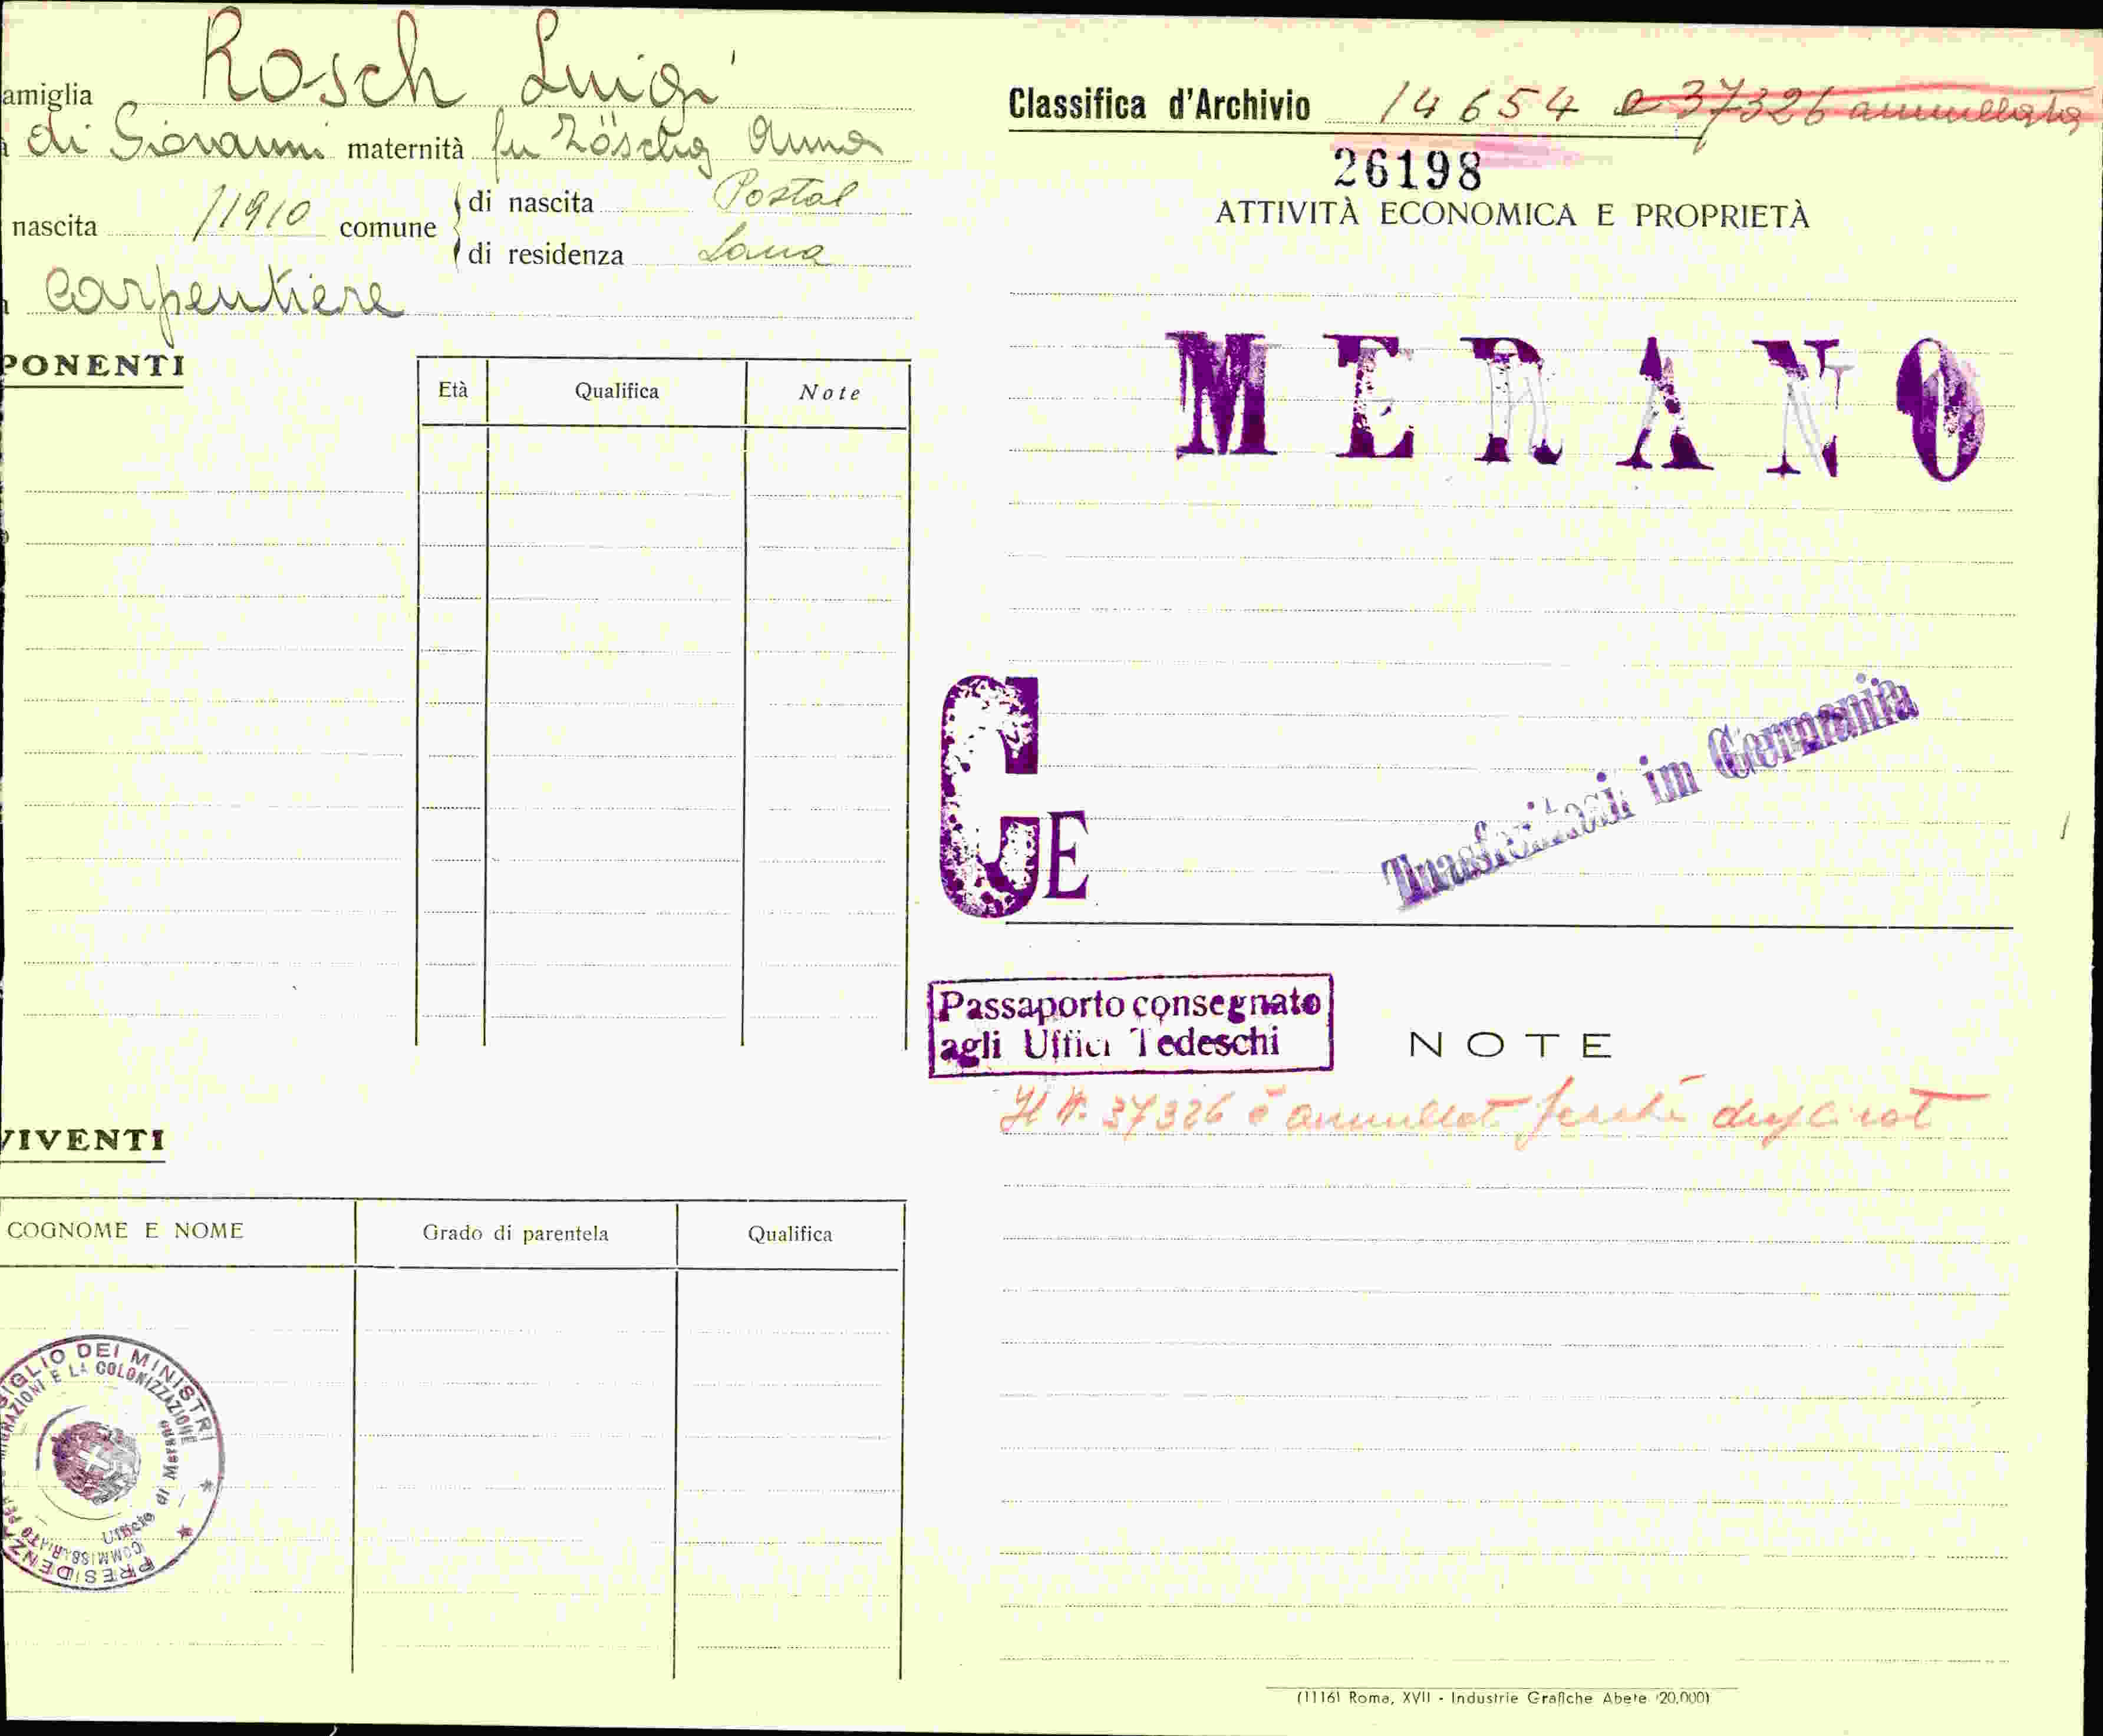 amiglia Rosch Luigi
di Giovanni maternità fu Anna
nascita /1910 comune di nascita Postal
di residenza Lana
Carpentiere
PONENTI
Età Qualifica Note
VIVENTI
COGNOME E NOME Grado di parentela Qualifica
SIGLIO DEI MINISTRI
E LA COLONIZZAZIONE
Ufficio di Merano
COMMISSARIATO PER
PRESIDENZA
Classifica d'Archivio 14654 e 37326 annullata
26198
ATTIVITÀ ECONOMICA E PROPRIETÀ
MERANO
GE
Trasferitosi in Germania
Passaporto consegnato
agli Uffici Tedeschi
NOTE
Il N. 37326 è annullat perché duplicat
(1116) Roma, XVII - Industrie Grafiche Abete (20.000)